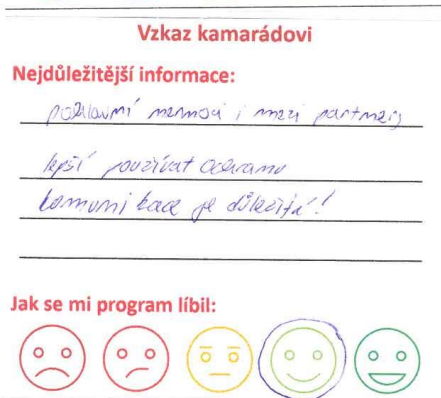 Vzkaz kamarádovi
Nejdůležitější informace:
pohlavní nemoci i mezi partnery
lepší používat ochranu
komunikace je důležitá!
Jak se mi program líbil: